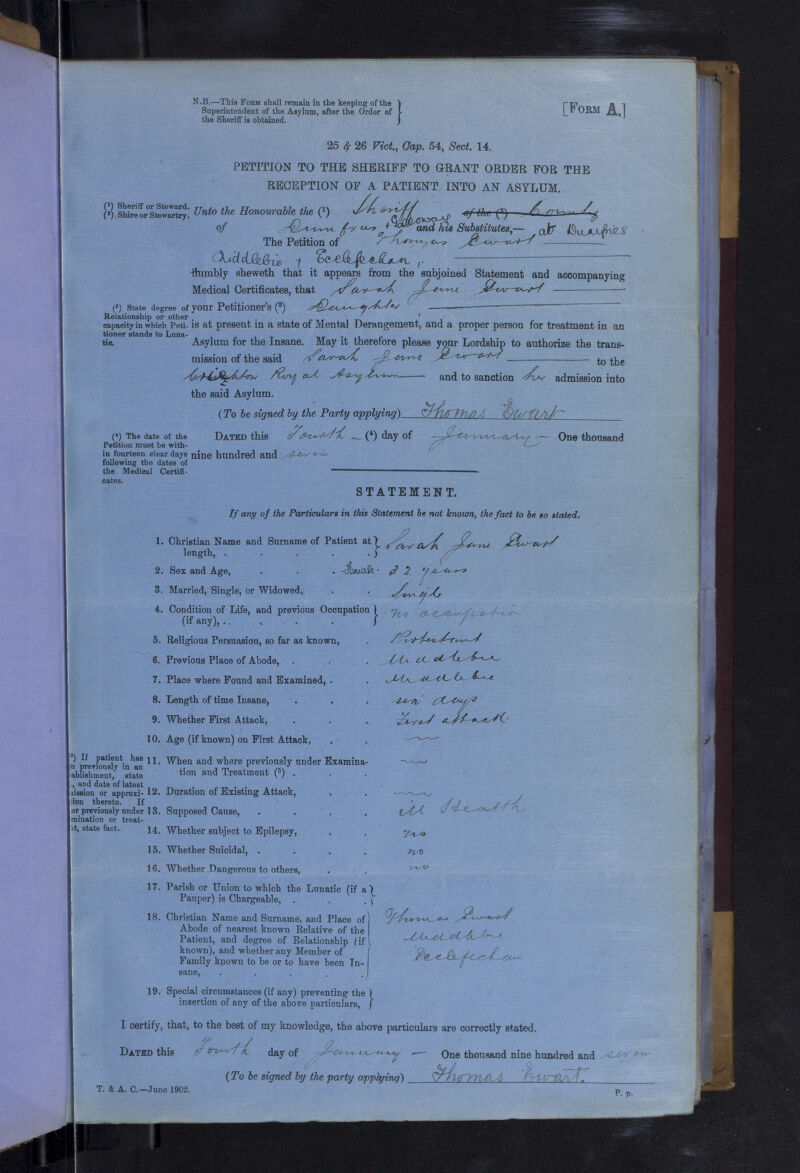 N.B.—This Form shall remain in the keeping of the
Superintendent of the Asylum, after the Order of
the Sheriff is obtained.
[Form A.]
25 & 26 Vict., Cap. 54, Sect. 14.
PETITION TO THE SHERIFF TO GRANT ORDER FOR THE
RECEPTION OF A PATIENT INTO AN ASYLUM.
(1) Sheriff or Steward.
(2) Shire or Stewartry.
Unto the Honourable the (1) Sheriff of the (2) County
of Dumfries & Galloway and his Substitutes,— at Dumfries
The Petition of Thomas Ewart
Middlebie, Ecclefechan,
Humbly sheweth that it appears from the subjoined Statement and accompanying
Medical Certificates, that Sarah Jane Ewart
(3) State degree of
Relationship or other
capacity in which Peti-
tioner stands to Luna-
tic.
your Petitioner's (3) Daughter
is at present in a state of Mental Derangement, and a proper person for treatment in an
Asylum for the Insane. May it therefore please your Lordship to authorize the trans-
mission of the said Sarah Jane Ewart to the
Crichton Royal Asylum and to sanction her admission into
the said Asylum.
(To be signed by the Party applying) Thomas Ewart
(4) The date of the
Petition must be with-
in fourteen clear days
following the dates of
the Medical Certifi-
cates.
Dated this Fourth (4) day of January One thousand
nine hundred and seven
STATEMENT.
If any of the Particulars in this Statement be not known, the fact to be so stated.
1. Christian Name and Surname of Patient at length, . . . . . Sarah Jane Ewart
2. Sex and Age, . . . Female. 32 years
3. Married, Single, or Widowed, . . Single
4. Condition of Life, and previous Occupation (if any), . . . . . no occupation
5. Religious Persuasion, so far as known, . Protestant
6. Previous Place of Abode, . . . Middlebie
7. Place where Found and Examined, . . Middlebie
8. Length of time Insane, . . . six days
9. Whether First Attack, . . . First attack
10. Age (if known) on First Attack, . .
11. When and where previously under Examina-
tion and Treatment (5) . . .
) If patient has
n previously in an
ablishment, state
, and date of latest
ission or approxi-
ion thereto. If
er previously under
mination or treat-
nt, state fact.
12. Duration of Existing Attack, . .
13. Supposed Cause, . . . . ill Health
14. Whether subject to Epilepsy, . . no
15. Whether Suicidal, . . . . no
16. Whether Dangerous to others, . . no
17. Parish or Union to which the Lunatic (if a
Pauper) is Chargeable, . . .
18. Christian Name and Surname, and Place of Thomas Ewart
Abode of nearest known Relative of the
Patient, and degree of Relationship (if Middlebie
known), and whether any Member of
Family known to be or to have been In- Ecclefechan
sane, . . . . .
19. Special circumstances (if any) preventing the
insertion of any of the above particulars,
I certify, that, to the best of my knowledge, the above particulars are correctly stated.
Dated this Fourth day of January One thousand nine hundred and seven
(To be signed by the party applying) Thomas Ewart.
T. & A. C.—June 1902.
P. p.